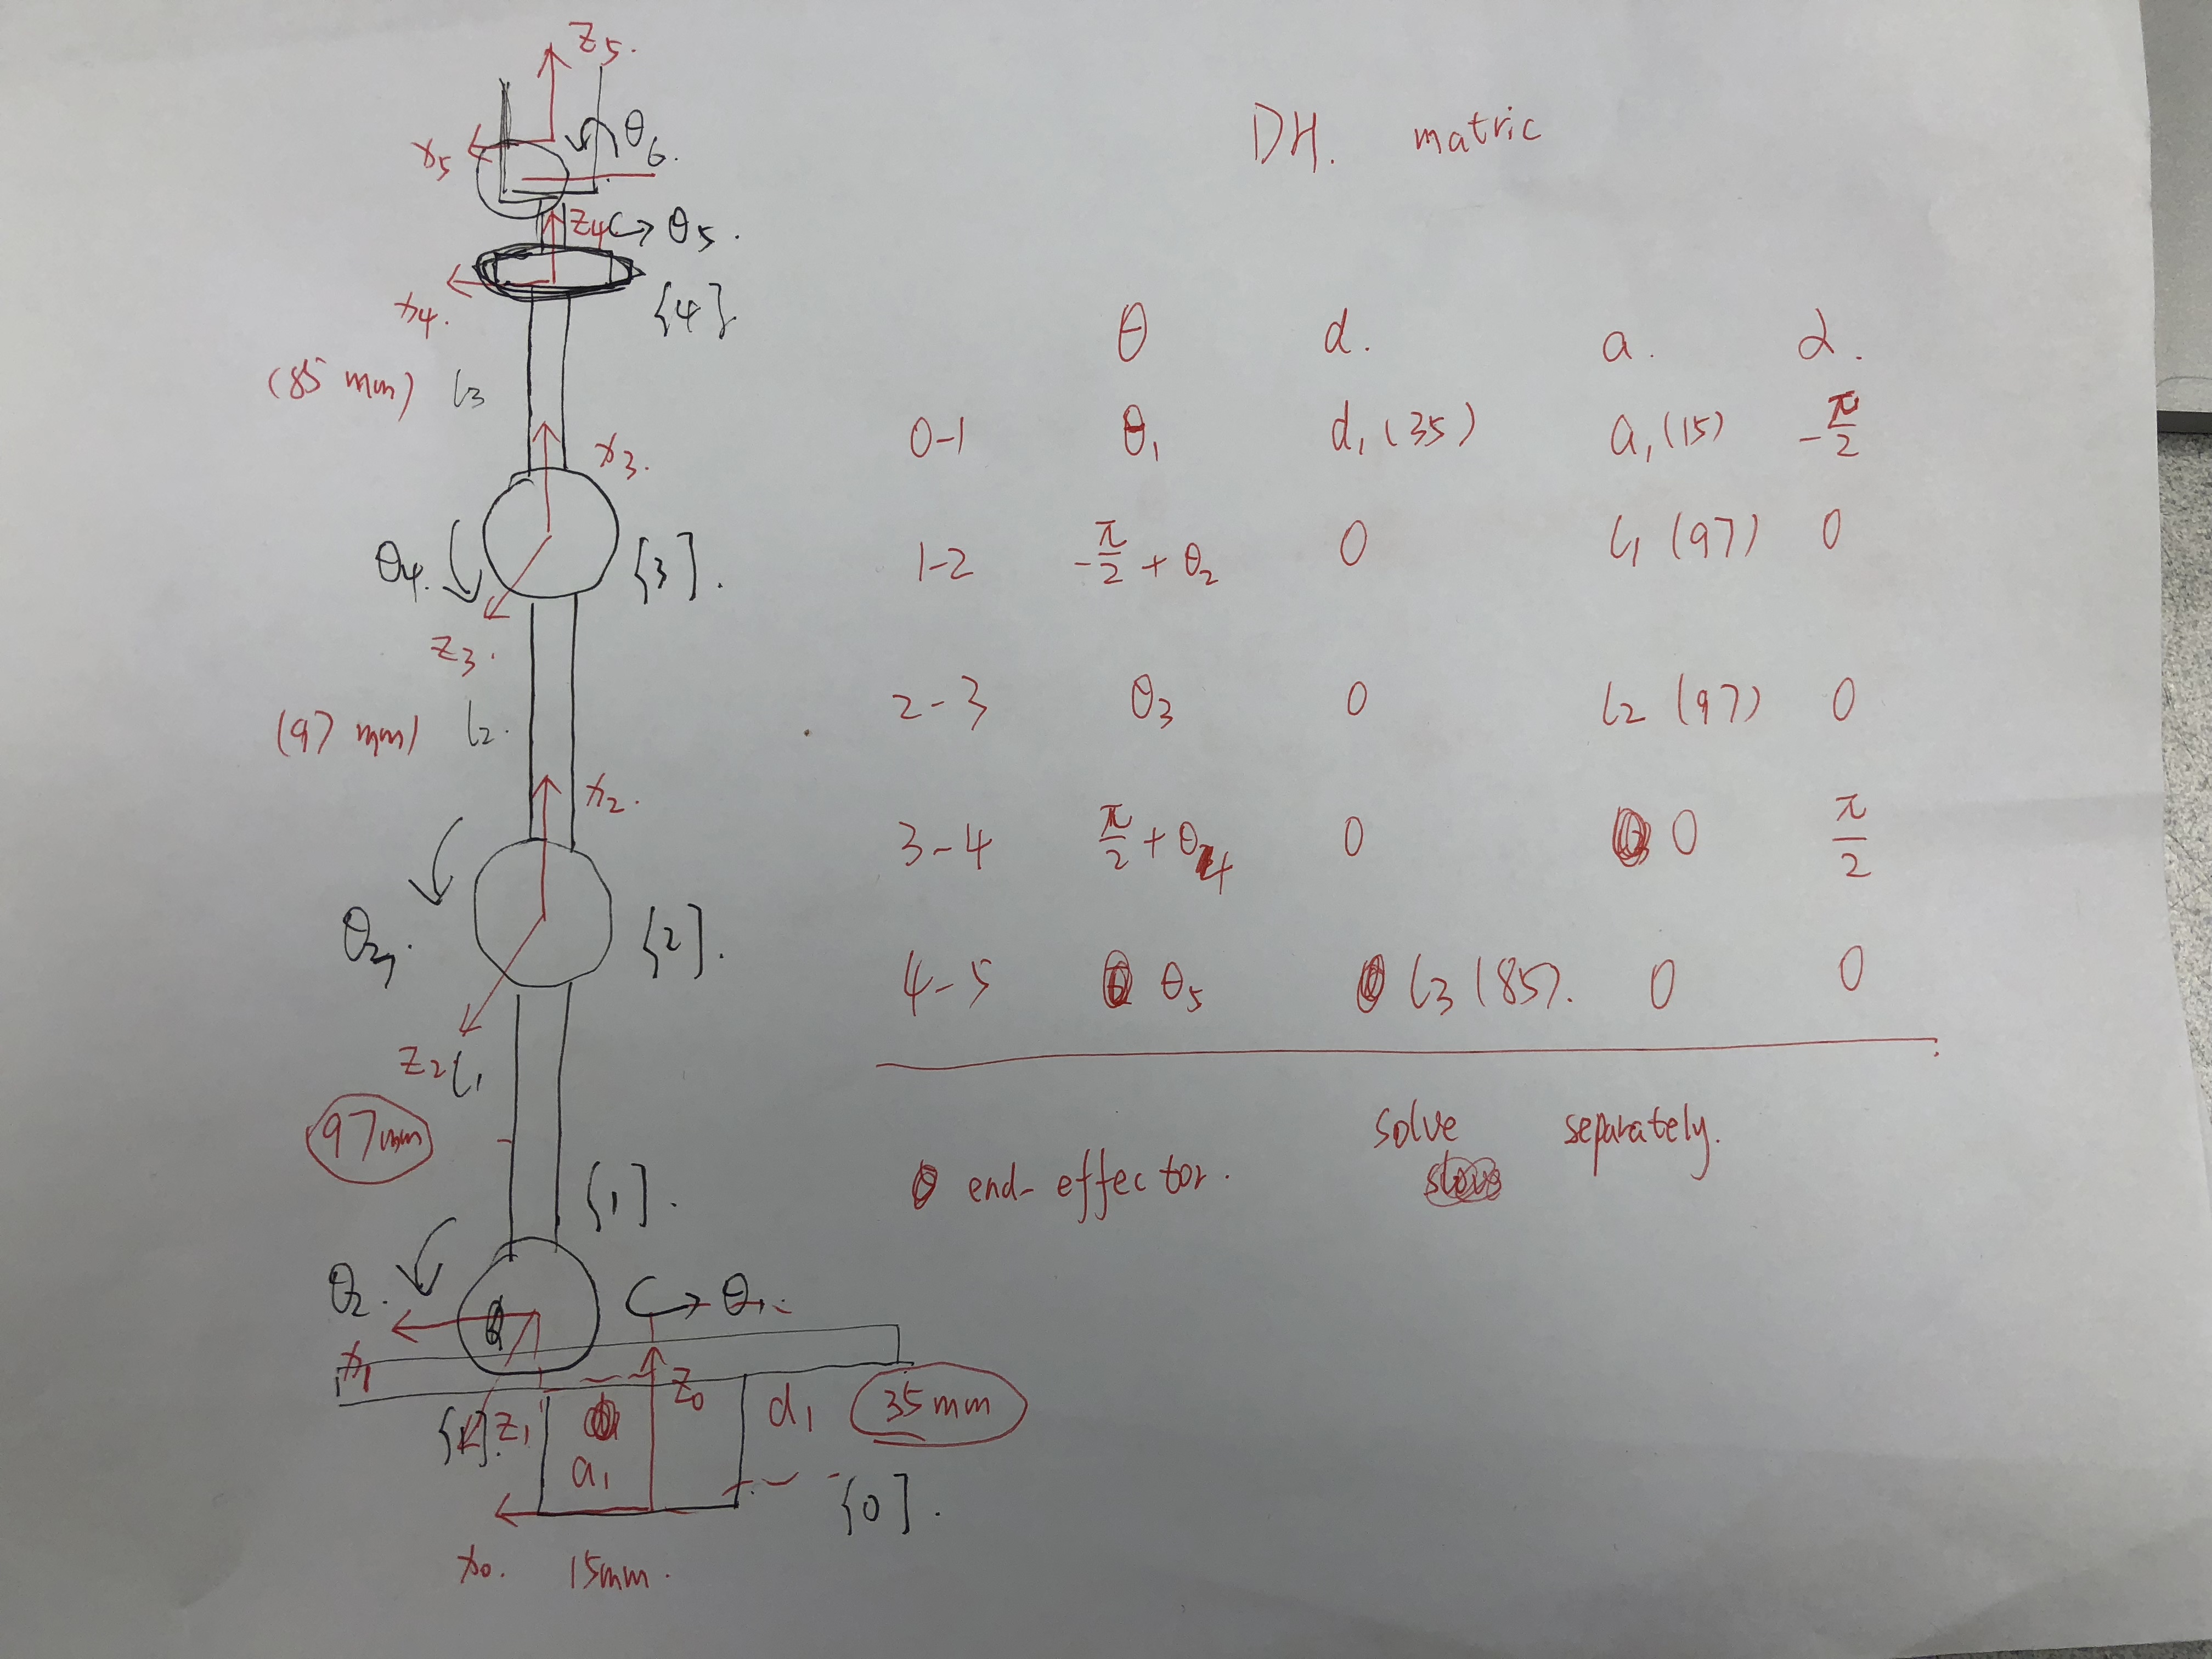 z5.
x5
θ6.
z4 θ5.
x4.
{4}
(85 mm) l3
x3.
θ4.
{3}.
z3.
(97 mm) l2.
x2.
θ3.
{2}.
z2 l1
97mm
{1}.
θ2.
θ1.
x1
{1}. z1
z0
d1 35mm
a1
{0}.
x0. 15mm.
DH. matric
θ d. a. α.
0-1 θ1 d1 (35) a1 (15) -π/2
1-2 -π/2 + θ2 0 l1 (97) 0
2-3 θ3 0 l2 (97) 0
3-4 π/2 + θ4 0 0 π/2
4-5 θ5 l3 (85). 0 0
end-effector. solve separately.